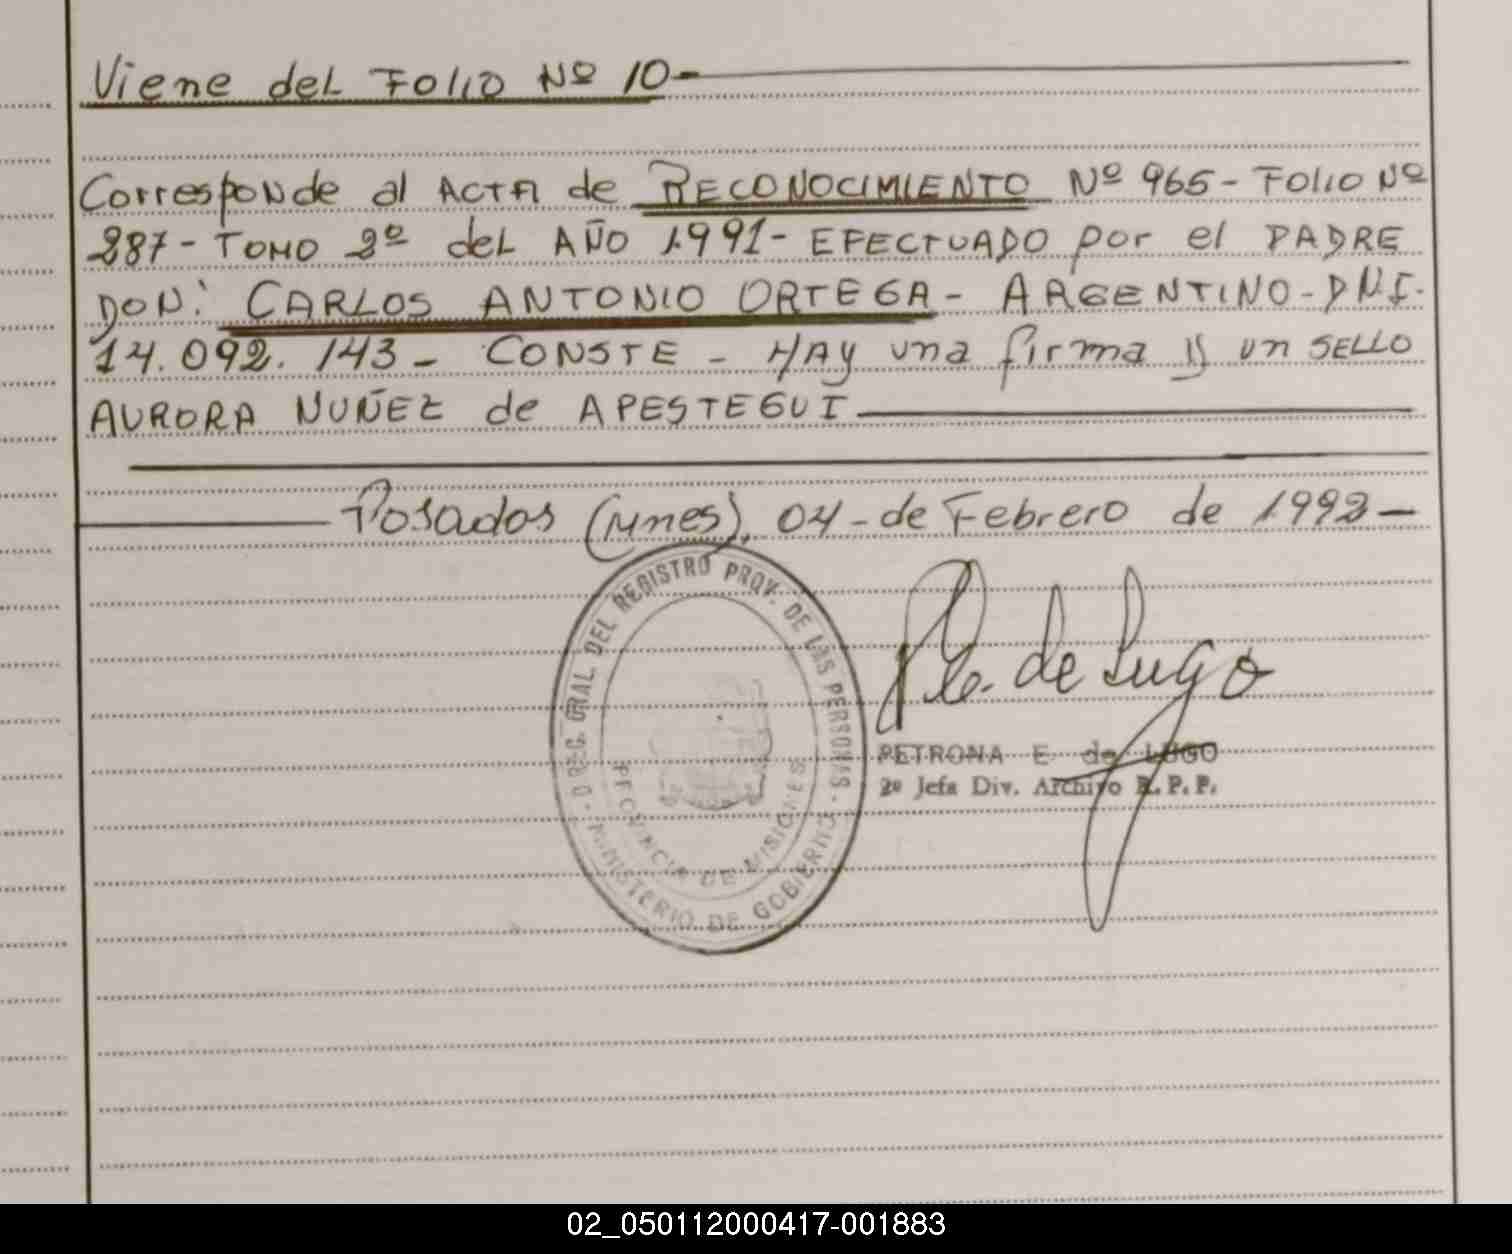 Viene del Folio Nº 10-
Corresponde al ACTA de RECONOCIMIENTO Nº 965- Folio Nº
287- TOMO 2º del AÑO 1991- EFECTUADO por el PADRE
DON: CARLOS ANTONIO ORTEGA- ARGENTINO- DNI.
14.092.143- CONSTE - HAY una firma y un SELLO
AURORA NUÑEZ de APESTEGUI
Posadas (Mnes), 04-de Febrero de 1992-
D REG. GRAL. DEL REGISTRO PROV. DE LAS PERSONAS -
MINISTERIO DE GOBIERNO
PROVINCIA DE MISIONES
P. E. de Lugo
PETRONA E. de LUGO
2º Jefa Div. Archivo R.P.P.
02_050112000417-001883